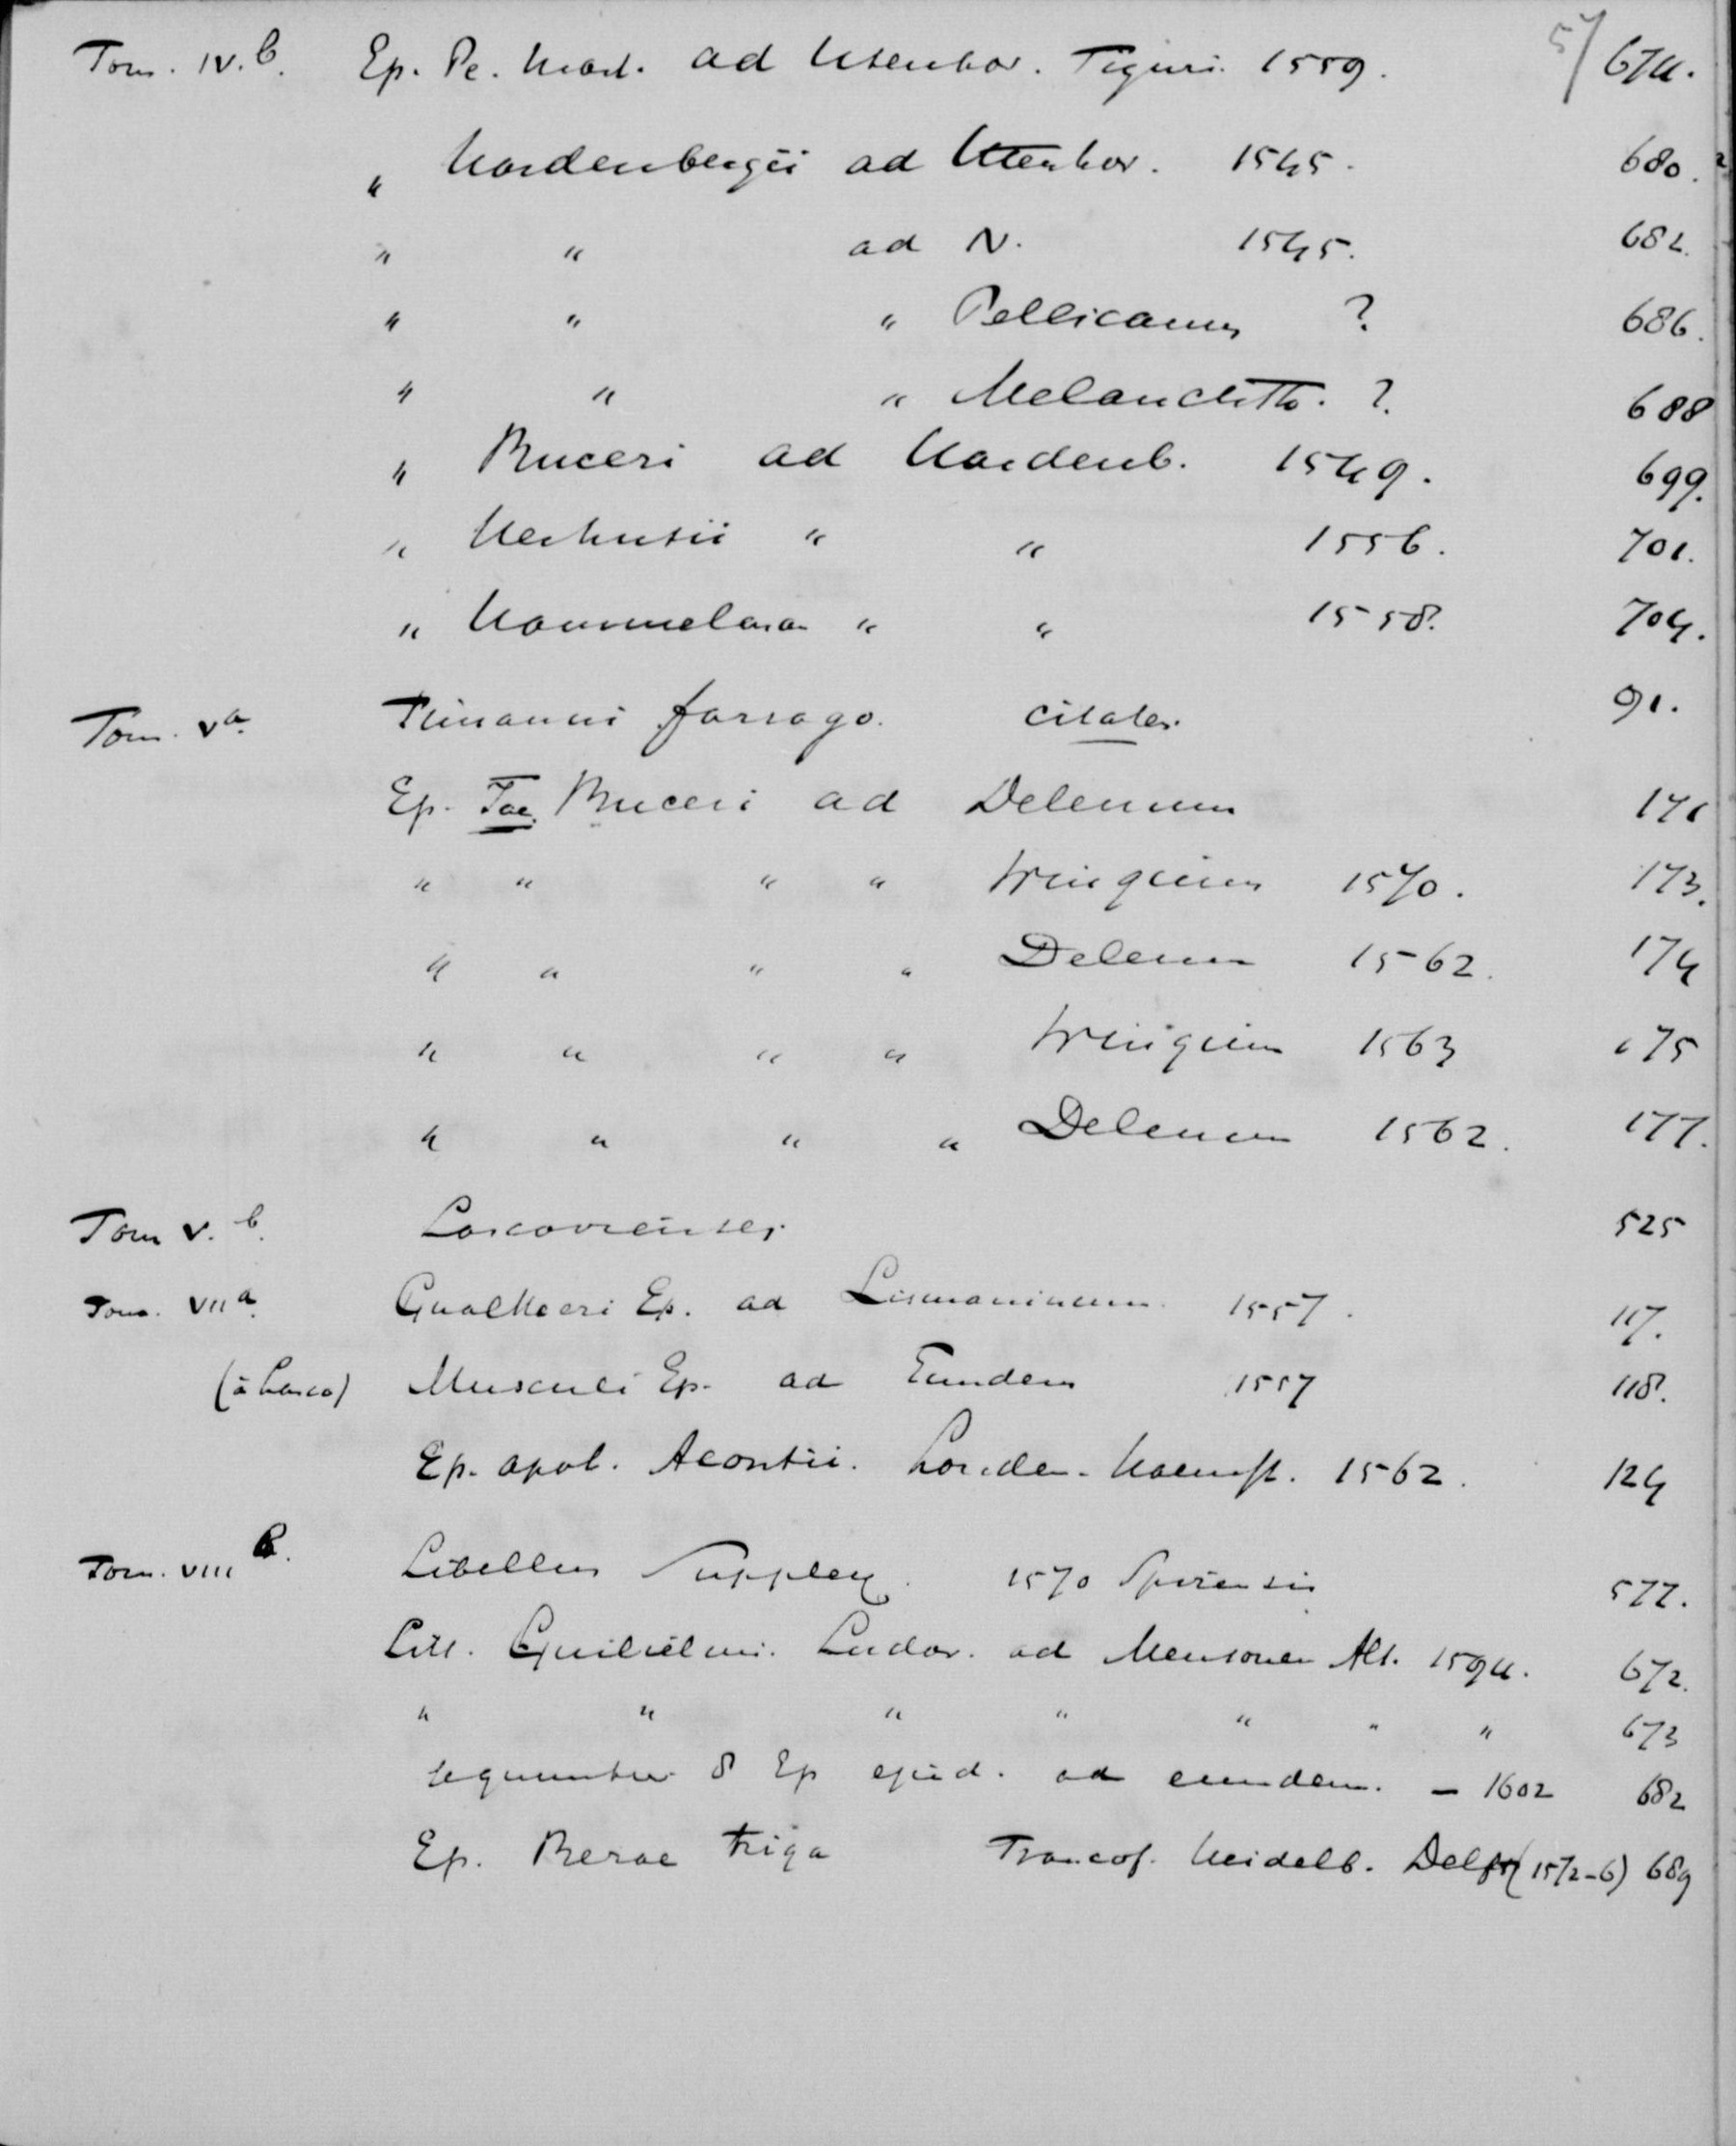 57
Tom. IV.b. Ep. Pe. Mart. ad Utenhov. Tiguri. 1559. 674.
„ Hardenbergii ad Utenhov. 1545. 680.
„ „ ad N. 1545. 682.
„ „ „ Pellicanum ? 686.
„ „ „ Melanchth. ? 688
„ Buceri ad Hardenb. 1549. 699.
„ „ „ 1556. 701.
„ Hammelman „ „ 1558. 704.
Tom. Va. Timanni farrago. citates. 91.
Ep. Jac. Buceri ad Delenum 171
„ „ „ „ Wingium 1570. 173.
„ „ „ „ Delenum 1562. 174
„ „ „ „ Wingium 1563 175
„ „ „ „ Delenum 1562. 177.
Tom V. b. 525
Tom. VIIa. Gualtheri Ep. ad Lismaninum. 1557. 117.
(à Lasco) Musculi Ep. ad Eundem 1557 118.
Ep. apol. Acontii. Londen. Haemst. 1562. 124
Tom. VIII B. Libellus Supplex. 1570 Spirensis 577.
Litt. Guilielmi. Ludov. ad Mensonem Alt. 1594. 672.
„ „ „ „ „ „ „ 673
sequuntur 8 Ep ejusd. ad eundem. – 1602 682
Ep. Bezae triga Francof. Heidelb. Delft (1572-6) 689